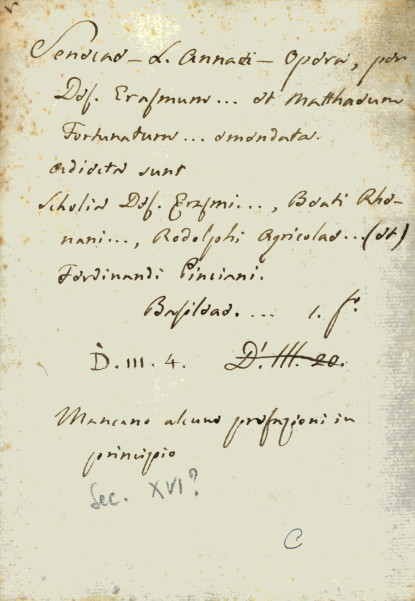 Senecae – L. Annaei – Opera, per
Des. Erasmum... et Matthaeum
Fortunatum... emendata.
adiecta sunt
Scholia Des. Erasmi..., Beati Rhe-
nani..., Rodolphi Agricolae... (et)
Ferdinandi Pinciani.
Basileae.... 1. f°.
D. III. 4. D'. III. 20.
Mancano alcune prefazioni in
principio
Sec. XVI?
C